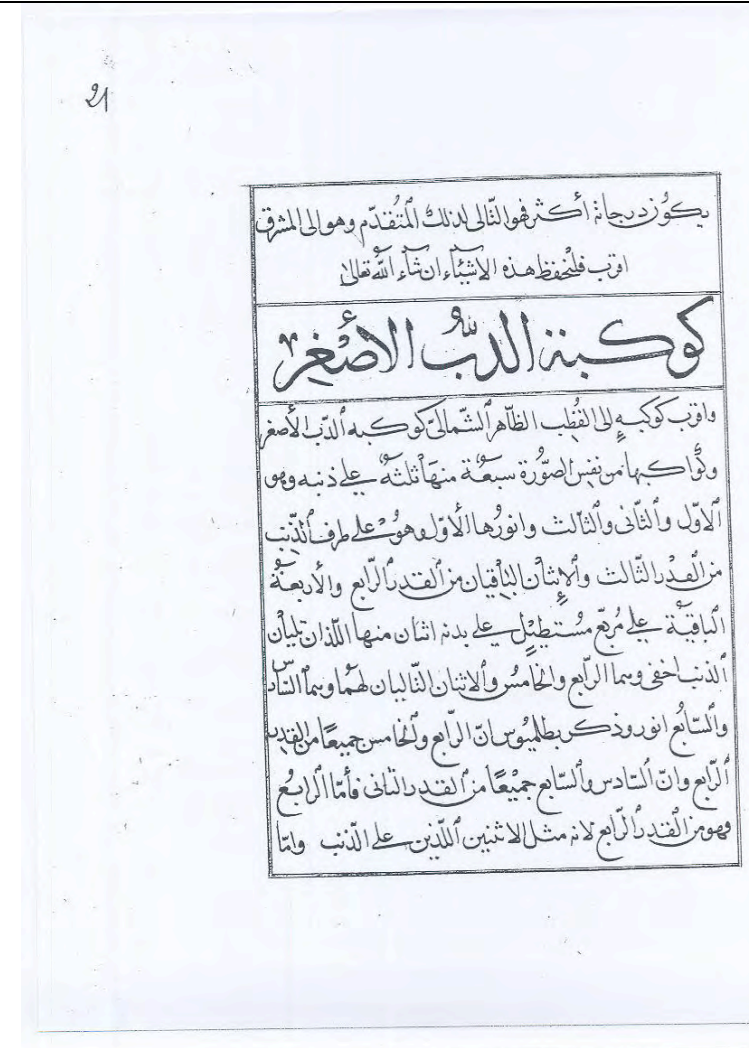 21
يكون درجاته أكثر فهو التّالى لذلك المُتقدّم وهو الى المشرق
اقرب فلنحفظ هذه الاشيآء ان شآء اللّه تعالى
كوكبة الدبّ الأصغر
واقرب كوكبه إلى القُطب الظّاهر الشّمالىّ كوكبه الدّبّ الأصغر
وكواكبها من نفس الصّورة سبعة منها ثلثة على ذنبه وهو
الاوّل والثّانى والثّالث وانورها الأوّل وهو على طرف الذّنب
من القدر الثّالث والإثنان الباقيان من القدر الرّابع والأربعة
الباقية على مُربّع مُستطيل على بدنه اثنان منها اللّذان تليان
الذنب اخفى وهما الرّابع والخامس والاثنان التّاليان لهما وهما السّاد
والسّابع انور وذكر بطلميوس انّ الرّابع والخامس جميعًا من القدر
الرّابع وانّ السّادس والسّابع جميعًا من القدر الثانى فأمّا الرّابع
فهو من القدر الرّابع لانه مثل الاثنين اللّذين على الذّنب وامّا